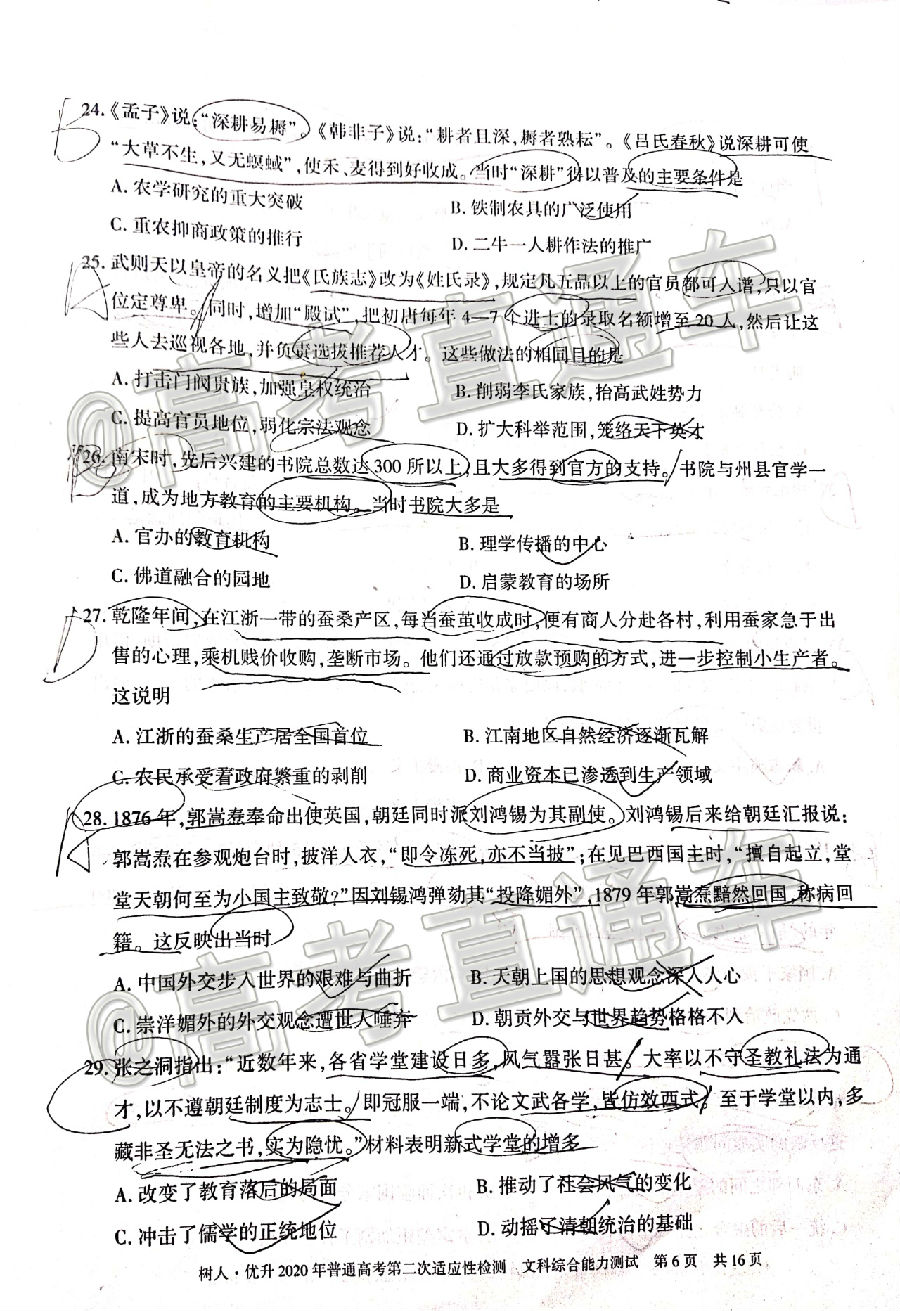 B
24.《孟子》说:“深耕易耨”,《韩非子》说:“耕者且深,耨者熟耘”。《吕氏春秋》说深耕可使
“大草不生,又无螟蜮”,使禾、麦得到好收成。当时“深耕”得以普及的主要条件是
A. 农学研究的重大突破 B. 铁制农具的广泛使用
C. 重农抑商政策的推行 D. 二牛一人耕作法的推广
A
25. 武则天以皇帝的名义把《氏族志》改为《姓氏录》,规定凡五品以上的官员都可入谱,只以官
位定尊卑。同时,增加“殿试”,把初唐每年 4—7 个进士的录取名额增至 20 人,然后让这
些人去巡视各地,并负责选拔推荐人才。这些做法的相同目的是
A. 打击门阀贵族,加强皇权统治 B. 削弱李氏家族,抬高武姓势力
C. 提高官员地位,弱化宗法观念 D. 扩大科举范围,笼络天下英才
B
26. 南宋时,先后兴建的书院总数达 300 所以上,且大多得到官方的支持。书院与州县官学一
道,成为地方教育的主要机构。当时书院大多是
A. 官办的教育机构 B. 理学传播的中心
C. 佛道融合的园地 D. 启蒙教育的场所
D
27. 乾隆年间,在江浙一带的蚕桑产区,每当蚕茧收成时,便有商人分赴各村,利用蚕家急于出
售的心理,乘机贱价收购,垄断市场。他们还通过放款预购的方式,进一步控制小生产者。
这说明
A. 江浙的蚕桑生产居全国首位 B. 江南地区自然经济逐渐瓦解
C. 农民承受着政府繁重的剥削 D. 商业资本已渗透到生产领域
A
28. 1876 年,郭嵩焘奉命出使英国,朝廷同时派刘鸿锡为其副使。刘鸿锡后来给朝廷汇报说:
郭嵩焘在参观炮台时,披洋人衣,“即令冻死,亦不当披”;在见巴西国主时,“擅自起立,堂
堂天朝何至为小国主致敬?”因刘锡鸿弹劾其“投降媚外”,1879 年郭嵩焘黯然回国,称病回
籍。这反映出当时
A. 中国外交步入世界的艰难与曲折 B. 天朝上国的思想观念深入人心
C. 崇洋媚外的外交观念遭世人唾弃 D. 朝贡外交与世界趋势格格不入
29. 张之洞指出:“近数年来,各省学堂建设日多,风气嚣张日甚。大率以不守圣教礼法为通
才,以不遵朝廷制度为志士。即冠服一端,不论文武各学,皆仿效西式。于学堂以内,多
藏非圣无法之书,实为隐忧。”材料表明新式学堂的增多
A. 改变了教育落后的局面 B. 推动了社会风气的变化
C. 冲击了儒学的正统地位 D. 动摇了清朝统治的基础
树人·优升 2020 年普通高考第二次适应性检测 文科综合能力测试 第 6 页 共 16 页
@高考直通车
@高考直通车